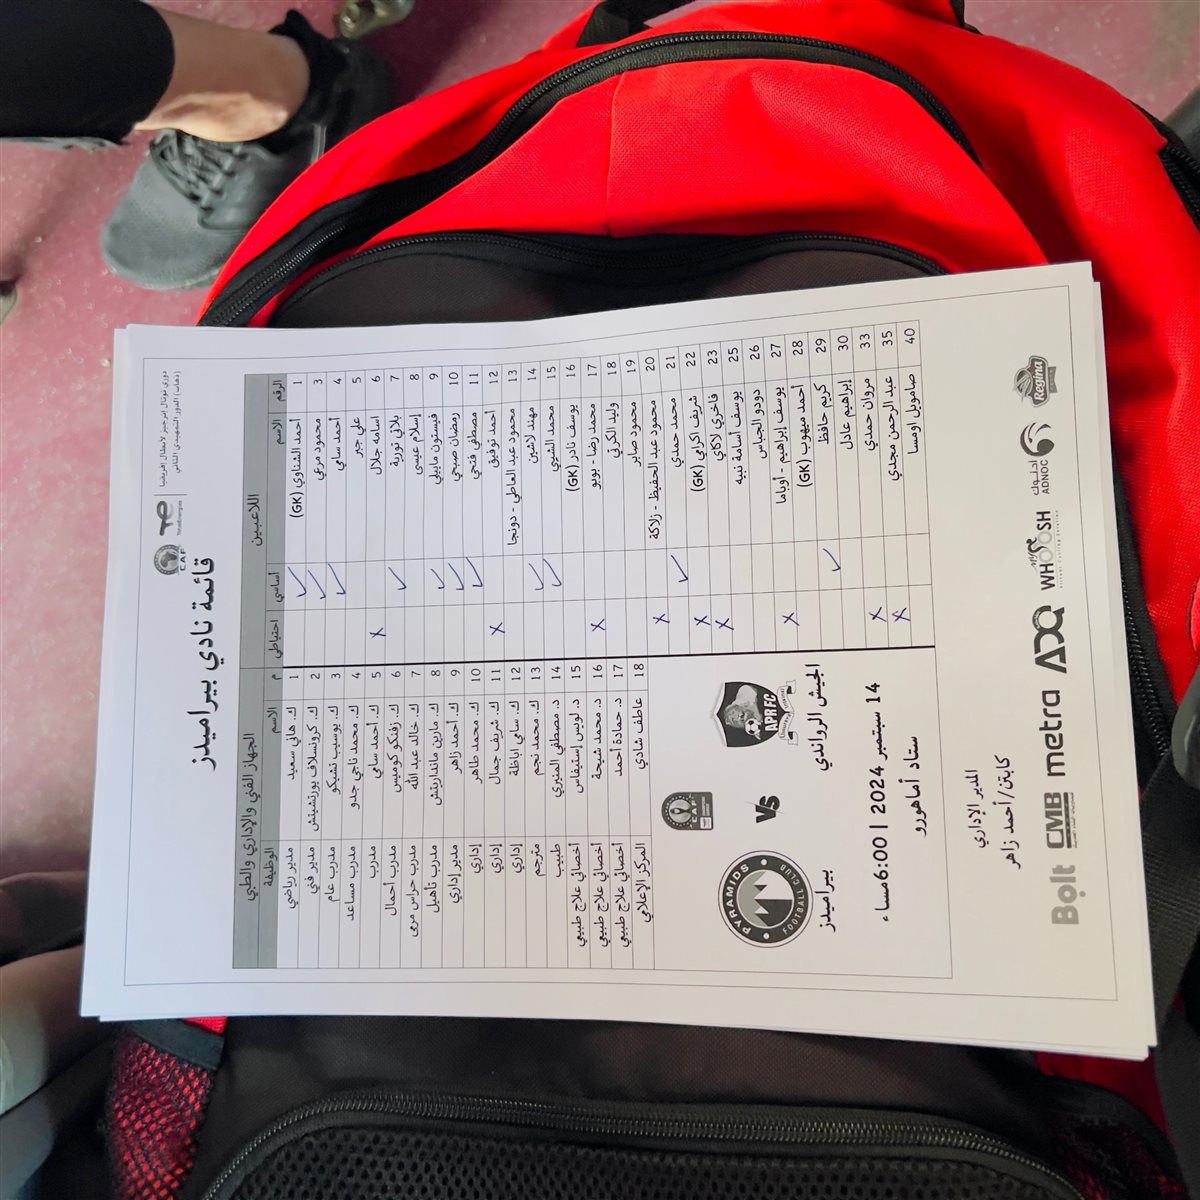 دوري توتال إنرجيز لأبطال إفريقيا
(ذهاب) الدور التمهيدي الثاني
CAF
TotalEnergies
قائمة نادي بيراميدز
اللاعبين
الرقم الاسم أساسي احتياطي
1 أحمد الشناوي (GK) ✓
3 محمود مرعي ✓
4 أحمد سامي ✓
5 علي جبر
6 أسامه جلال x
7 بلاتي توريه ✓
8 إسلام عيسى
9 فيستون ماييلي ✓
10 رمضان صبحي ✓
11 مصطفى فتحي ✓
12 أحمد توفيق x
13 محمود عبد العاطي - دونجا
14 مهند لاشين ✓
15 محمد الشيبي ✓
16 يوسف نادر (GK)
17 محمد رضا - بوبو x
18 وليد الكرتي
19 محمود صابر
20 محمود عبد الحفيظ - زلاكة x
21 محمد حمدي ✓
22 شريف اكرامي (GK) x
23 فاخري لاكاي x
25 يوسف أسامة نبيه
26 دودو الجباس
27 يوسف إبراهيم - أوباما x
28 أحمد ميهوب (GK)
29 كريم حافظ ✓
30 إبراهيم عادل
33 مروان حمدي x
35 عبد الرحمن مجدي x
40 صامويل اومسا
الجهاز الفني والإداري والطبي
م الاسم الوظيفة
1 ك. هاني سعيد مدير رياضي
2 ك. كرونسلاف يورتشيتش مدير فني
3 ك. يوسيب تشيكو مدرب عام
4 ك. محمد ناجي جدو مدرب مساعد
5 ك. أحمد سامي مدرب
6 ك. زفنكو كوميس مدرب أحمال
7 ك. خالد عبد الله مدرب حراس مرمى
8 ك. مارين مانداريتش مدرب تأهيل
9 ك. أحمد زاهر مدير إداري
10 ك. محمد طاهر إداري
11 ك. شريف جمال إداري
12 ك. سامي اباظة إداري
13 ك. محمد نجم مترجم
14 د. مصطفى المنيري طبيب
15 د. لويس إستيفاس أخصائي علاج طبيعي
16 د. محمد شيحة أخصائي علاج طبيعي
17 د. حمادة أحمد أخصائي علاج طبيعي
18 عاطف شادي المركز الإعلامي
CAF
APR FC
VS
PYRAMIDS
FOOTBALL CLUB
الجيش الرواندي
بيراميدز
14 سبتمبر 2024 | 6:00 مساء
ستاد أماهورو
المدير الإداري
كابتن / أحمد زاهر
Bolt
CMB
metra
ADQ
my WHOOSH
أدنوك
ADNOC
Regina